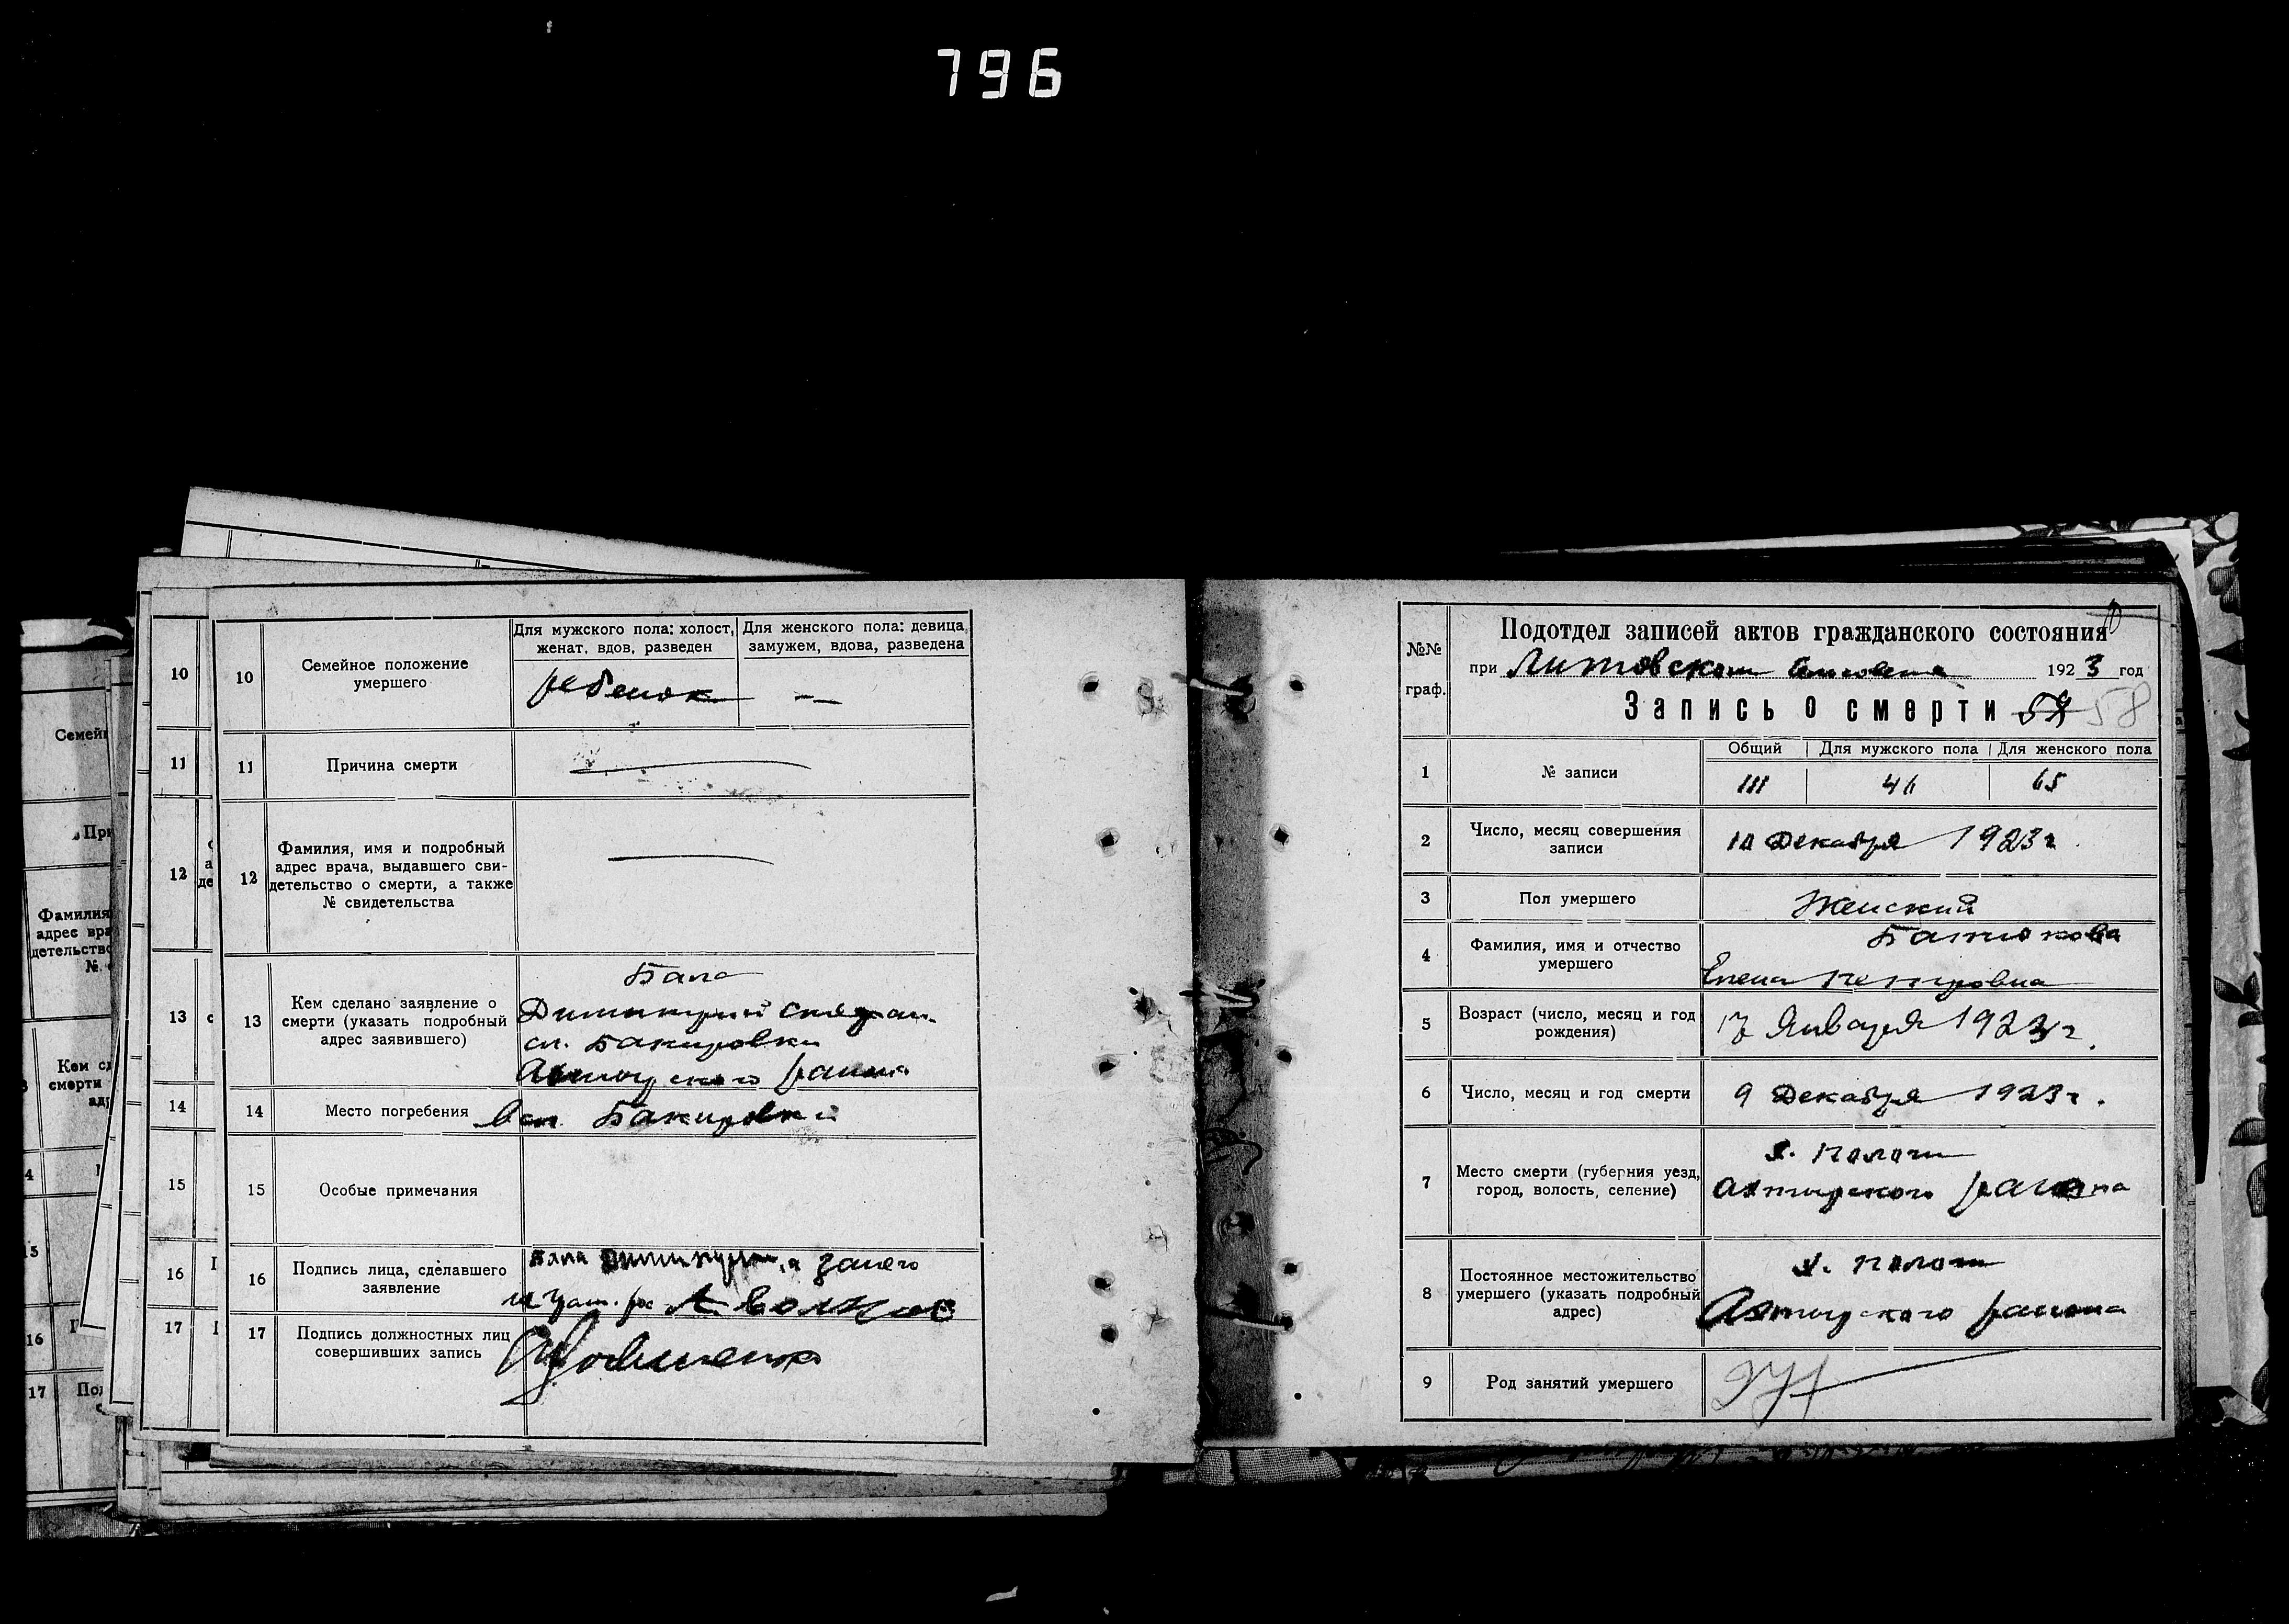 796
10
Семейное положение
умершего
Для мужского пола: холост,
женат, вдов, разведен
Для женского пола: девица
замужем, вдова, разведена
ребенок
—
11
Причина смерти
12
Фамилия, имя и подробный
адрес врача, выдавшего сви-
детельство о смерти, а также
№ свидетельства
13
Кем сделано заявление о
смерти (указать подробный
адрес заявившего)
Бала
Димитрий Степан.
сл. Бакировки
Ахтырского района
14
Место погребения
в сл. Бакировки
15
Особые примечания
16
Подпись лица, сделавшего
заявление
Бала Димитрий, а за него
А. Волков
17
Подпись должностных лиц
совершивших запись
10
11
12
13
14
15
16
17
Семей
При
Фамилия
адрес вра
детельство
№
Кем сд
смерти
адр
16
17
№№
граф.
Подотдел записей актов гражданского состояния
при Литовском 1923 год
Запись о смерти 58
1
№ записи
Общий
Для мужского пола
Для женского пола
111
46
65
2
Число, месяц совершения
записи
10 Декабря 1923 г.
3
Пол умершего
Женский
4
Фамилия, имя и отчество
умершего
Батюкова
Елена Петровна
5
Возраст (число, месяц и год
рождения)
17 Января 1923 г.
6
Число, месяц и год смерти
9 Декабря 1923 г.
7
Место смерти (губерния уезд,
город, волость, селение)
Ахтырского района
8
Постоянное местожительство
умершего (указать подробный
адрес)
Ахтырского района
9
Род занятий умершего